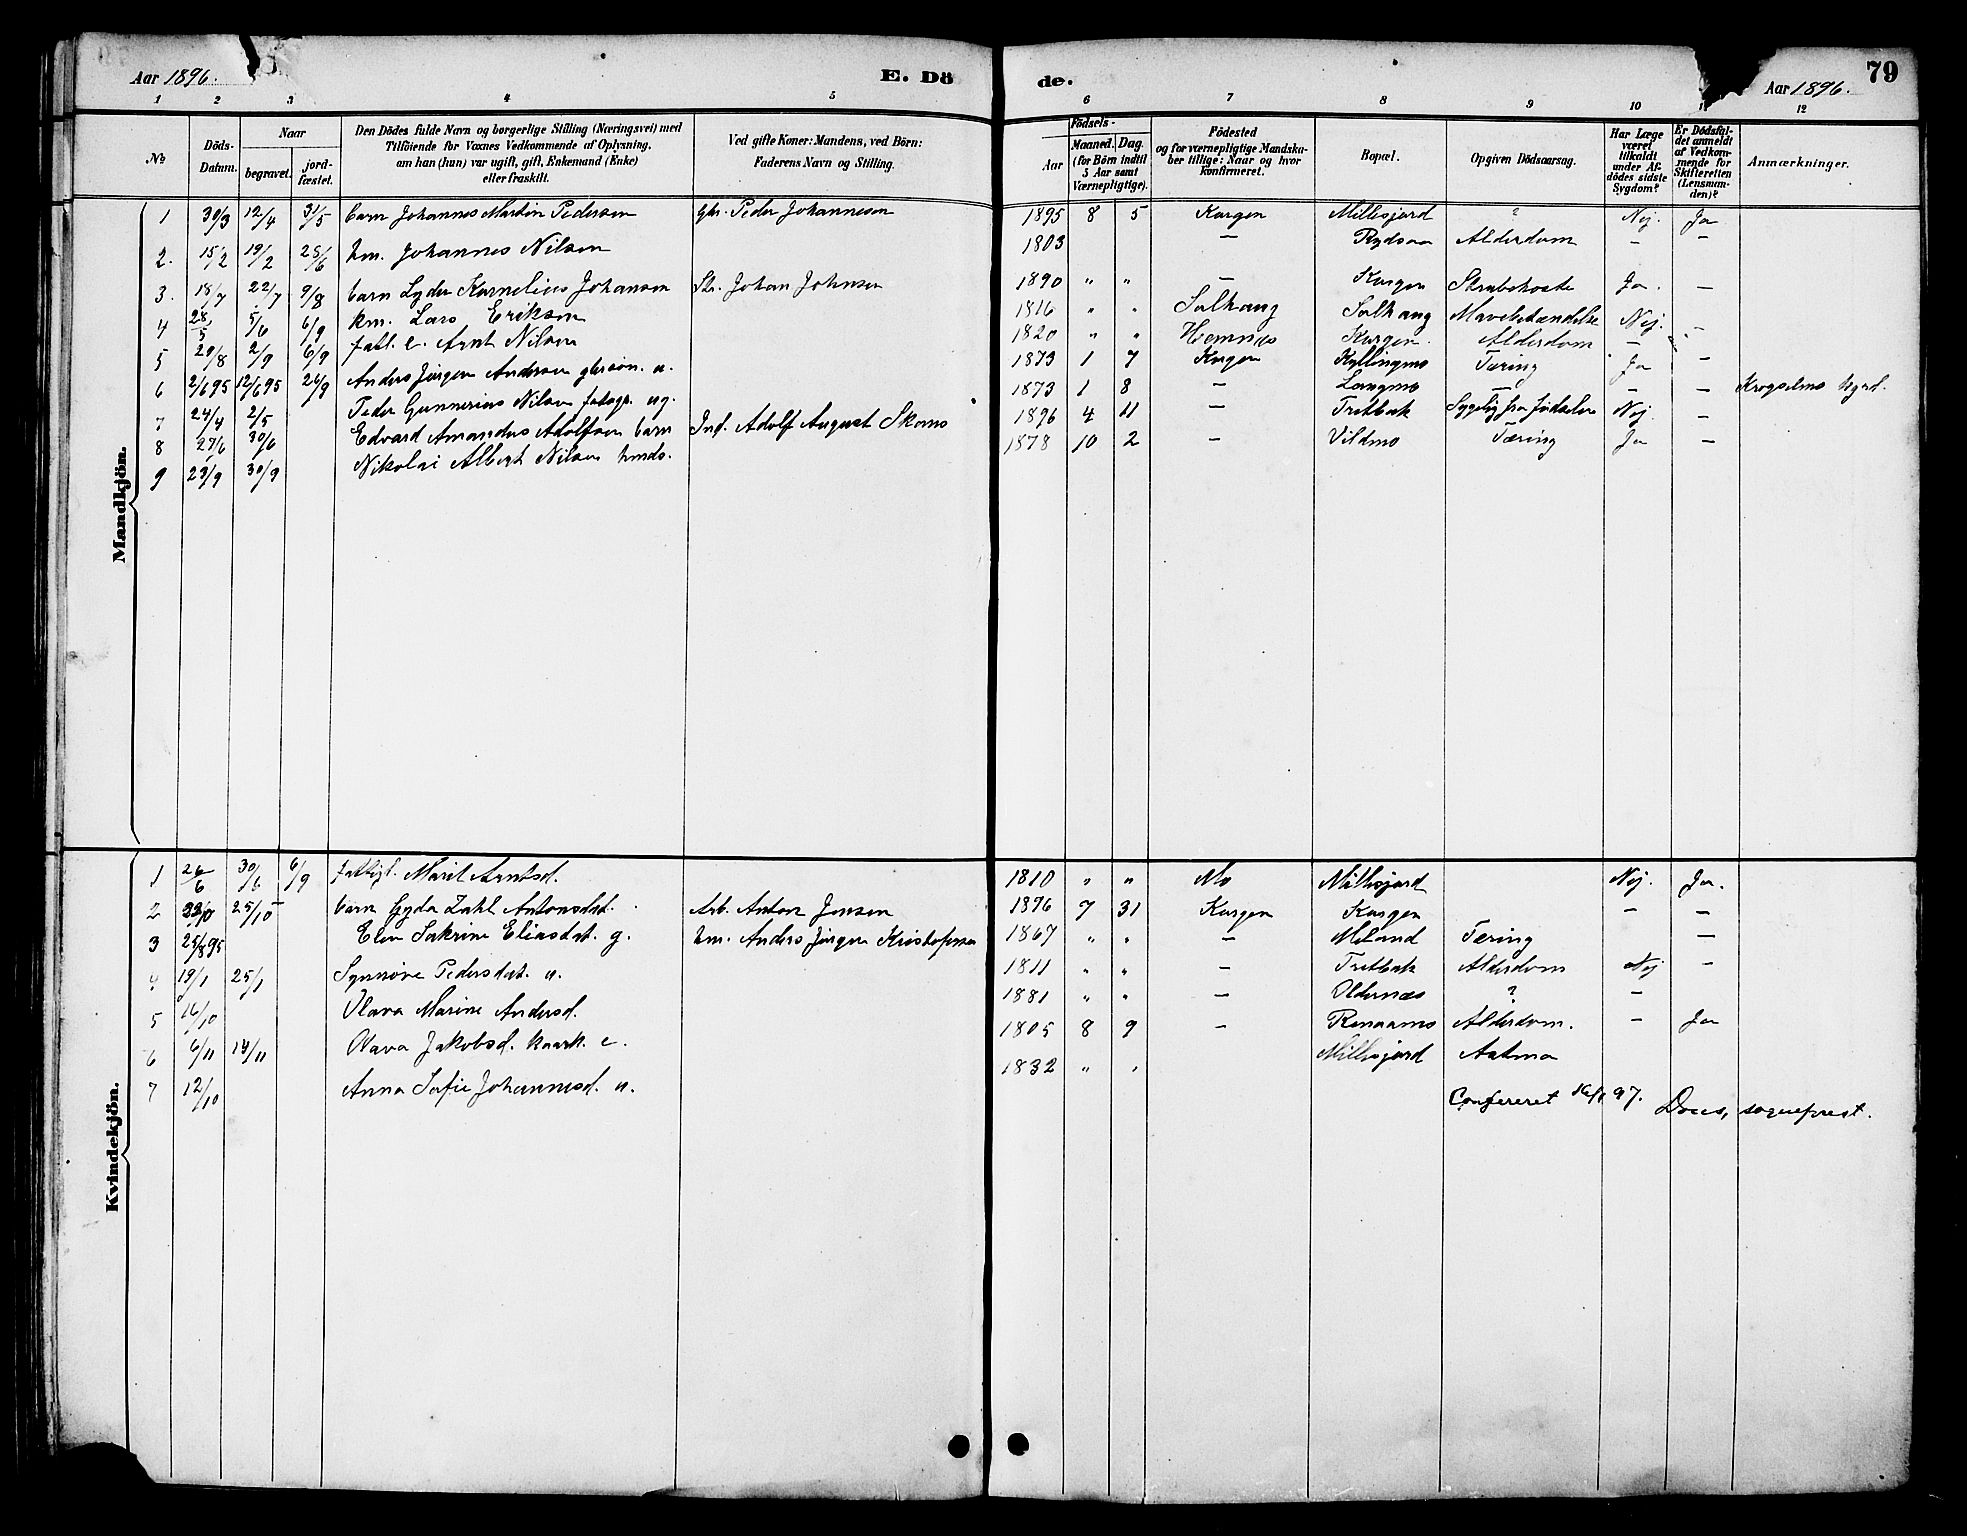 Aar 1896. E. Dö de. Aar 1896. 79
1 2 3 4 5 6 7 8 9 10 12
No Döds-Datum. Naar begravet. jordfæstet. Den Dödes fulde Navn og borgerlige Stilling (Næringsvei) med Tilföiende for Voxnes Vedkommende af Oplysning, om han (hun) var ugift, gift, Enkemand (Enke) eller fraskilt. Ved gifte Koner: Mandens, ved Börn: Faderens Navn og Stilling. Födsels- Aar Maaned. Dag. (for Börn indtil 5 Aar samt Værnepligtige). Födested og for værnepligtige Mandskaber tillige: Naar og hvor konfirmeret. Bopæl. Opgiven Dödsaarsag. Har Læge været tilkaldt under Afdödes sidste Sygdom? Er Dödsfaldet anmeldt af Vedkommende for Skifteretten (Lensmanden)? Anmærkninger.
Mandkjön.
1 30/3 12/4 31/5 barn Johannes Martin Pedersen Gbr. Peder Johannesen 1895 8 5 Korgen Millesjord ? Nej. Ja
2. 15/2 19/2 25/6 hm. Johannes Nilsen 1803 — Rydsaa Alderdom — —
3. 18/7 22/7 9/8 barn Lyder Kornelius Johansen Str. Johan Johnsen 1890 " " — Korgen Strubehoste Ja. —
4 28/5 5/6 6/9 km. Lars Eriksen 1816 " " Solhaug Solhaug Mavebetændelse Nej. —
5 29/8 2/9 6/9 fatl. e. Arnt Nilsen 1820 " " Hemnes Korgen. Alderdom —
6 2/6 95 12/6 95 26/8 Anders Jörgen Andersen gbrsön. u. 1873 1 7 Korgen Kyllingmo Tæring Ja —
7 24/4 2/5 Peder Gunnerius Nilsen ug. 1873 1 8 — Langmo — — — Krogselmo
8 27/6 30/6 Edvard Amandus Adolfsen barn Ind. Adolf August Skomo 1896 4 11 — Tretbak Sygelig fra Födselen Nej. —
9 23/9 30/9 Nikolai Albert Nilsen hmds. 1878 10 2 — Vildmo Tæring Ja —
Kvindekjön.
1 26/6 30/6 6/9 fattigl. Marit Arntsd. 1810 " " Mo Millesjord Nej. Ja.
2 25/10 barn Gyda Zahl Antonsdat. Arb. Anton Jensen 1896 7 31 Korgen Korgen — —
3 25/8 95 Elen Sakrine Eliasdat. g. hm. Anders Jörgen Kristofersen 1867 " " — Moland Tæring —
4 19/1 25/1 Synnöve Pedersdat. u. 1811 " " — Tretbak Alderdom Nej —
5 16/10 Olava Marine Andersd. 1881 " " — Oldernæs ? —
6 6/11 14/11 Olava Jakobsd. kaark. e. 1805 8 9 — Renaamo Alderdom. — Ja
7 12/10 Anna Sofie Johannesd. u. 1832 " " Millesjord Astma
Confereret 16/1 97. sogneprest.